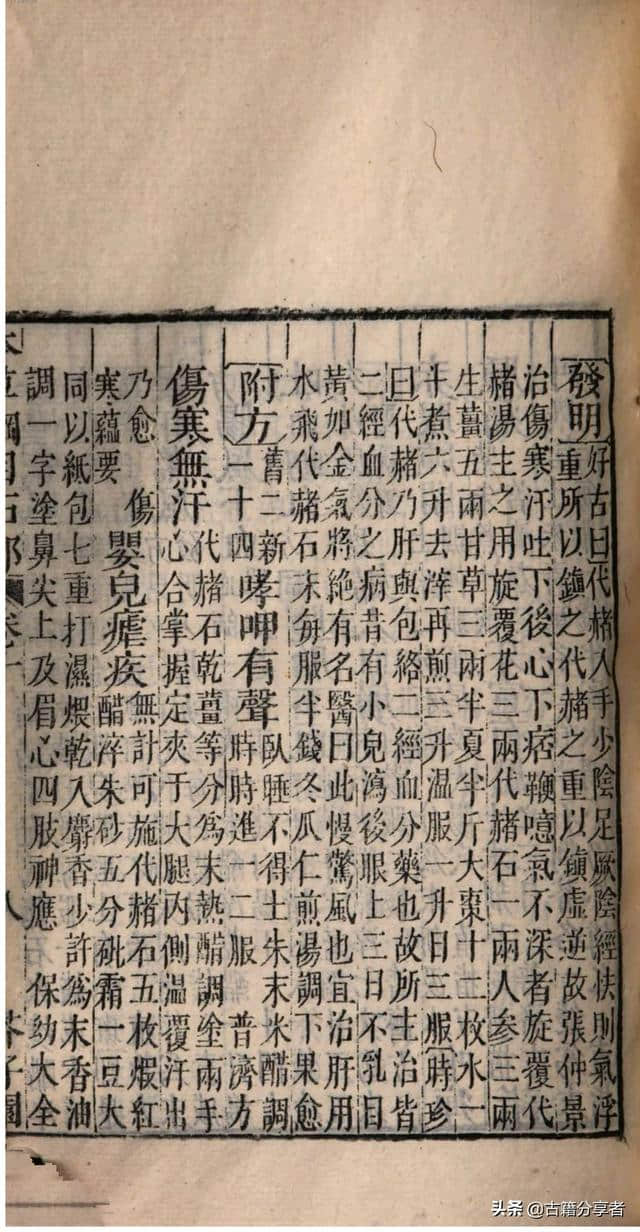 發明
好古曰代赭入手少陰足厥陰經怯則氣浮
重所以鎮之代赭之重以鎮虛逆故張仲景
治傷寒汗吐下後心下痞鞕噫氣不深者旋覆代
赭湯主之用旋覆花三兩代赭石一兩人參三兩
生薑五兩甘草三兩半夏半斤大棗十二枚水一
斗煮六升去滓再煎三升温服一升日三服時珍
曰代赭乃肝與包絡二經血分藥也故所主治皆
二經血分之病昔有小兒瀉後眼上三日不乳目
黃如金氣將絕有名醫曰此慢驚風也宜治肝用
水飛代赭石末每服半錢冬瓜仁煎湯調下果愈
附方
舊二新
一十四
哮呷有聲
臥睡不得土朱末米醋調
時時進一二服 普濟方
傷寒無汗
代赭石乾薑等分為末熱醋調塗兩手
心合掌握定夾于大腿内側温覆汗出
乃愈 傷
寒蘊要
嬰兒瘧疾
無計可施代赭石五枚煅紅
醋淬朱砂五分砒霜一豆大
同以紙包七重打濕煨乾入麝香少許為末香油
調一字塗鼻尖上及眉心四肢神應 保幼大全
本草綱目石部 卷十 八 芥子園
头条 @古籍分享者